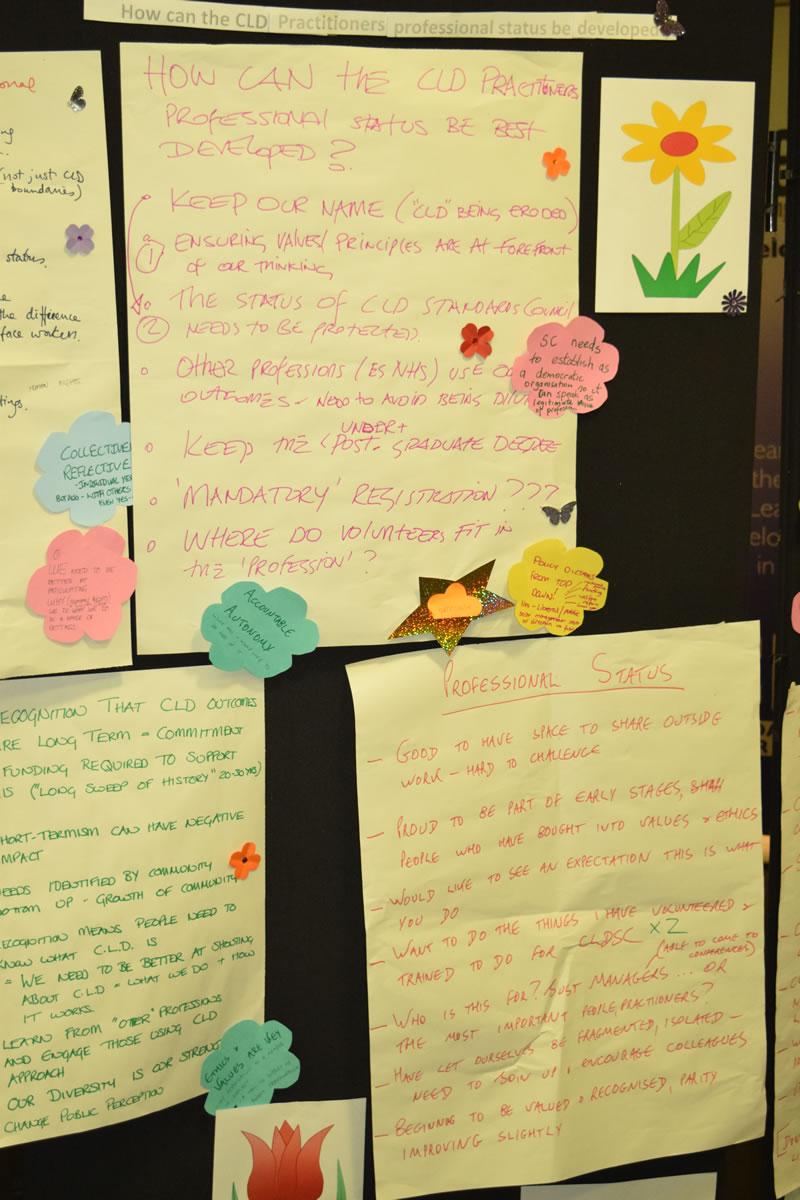 How can the CLD Practitioners professional status be developed
HOW CAN THE CLD PRACTITIONERS
PROFESSIONAL STATUS BE BEST
DEVELOPED?
KEEP OUR NAME ("CLD" BEING ERODED)
1 ENSURING VALUES/PRINCIPLES ARE AT FOREFRONT
OF OUR THINKING
THE STATUS OF CLD STANDARDS COUNCIL
2 NEEDS TO BE PROTECTED.
OTHER PROFESSIONS (EG NHS) USE
OUTCOMES - NEED TO AVOID BEING
UNDER +
KEEP THE < POST-GRADUATE DEGREE
'MANDATORY' REGISTRATION???
WHERE DO VOLUNTEERS FIT IN
THE 'PROFESSION'?
SC needs
to establish as
a democratic
organisation so it
can speak as
legitimate
of
(not just CLD
boundaries)
status.
the difference
face workers.
HUMAN RIGHTS
COLLECTIVE
REFLECTIVE
-INDIVIDUAL YES
BUT ALSO - WITH OTHERS
EVEN YES-
WE NEED TO BE
BETTER AT
ARTICULATING
WHY
ACCOUNTABLE
AUTONOMY
POLICY
FROM TOP
DOWN!
RECOGNITION THAT CLD OUTCOMES
ARE LONG TERM = COMMITMENT
FUNDING REQUIRED TO SUPPORT
("LONG SWEEP OF HISTORY" 20-30 YRS)
SHORT-TERMISM CAN HAVE NEGATIVE
IMPACT
NEEDS IDENTIFIED BY COMMUNITY
BOTTOM UP - GROWTH OF COMMUNITY
RECOGNITION MEANS PEOPLE NEED TO
KNOW WHAT C.L.D. IS
= WE NEED TO BE BETTER AT SHOUTING
ABOUT C.L.D = WHAT WE DO + HOW
IT WORKS.
LEARN FROM "OTHER" PROFESSIONS
AND ENGAGE THOSE USING CLD
APPROACH
OUR DIVERSITY IS OUR STRENGTH
CHANGE PUBLIC PERCEPTION
ETHICS +
VALUES ARE KEY
PROFESSIONAL STATUS
- GOOD TO HAVE SPACE TO SHARE OUTSIDE
WORK - HARD TO CHALLENGE
- PROUD TO BE PART OF EARLY STAGES,
PEOPLE WHO HAVE BOUGHT INTO VALUES & ETHICS
- WOULD LIKE TO SEE AN EXPECTATION THIS IS WHAT
YOU DO
- WANT TO DO THE THINGS I HAVE VOLUNTEERED &
TRAINED TO DO FOR CLDSC x2
(ABLE TO COME TO
CONFERENCES)
- WHO IS THIS FOR? JUST MANAGERS... OR
THE MOST IMPORTANT PEOPLE, PRACTIONERS?
- HAVE LET OURSELVES BE FRAGMENTED, ISOLATED -
NEED TO JOIN UP & ENCOURAGE COLLEAGUES
- BEGINNING TO BE VALUED & RECOGNISED, PARITY
IMPROVING SLIGHTLY